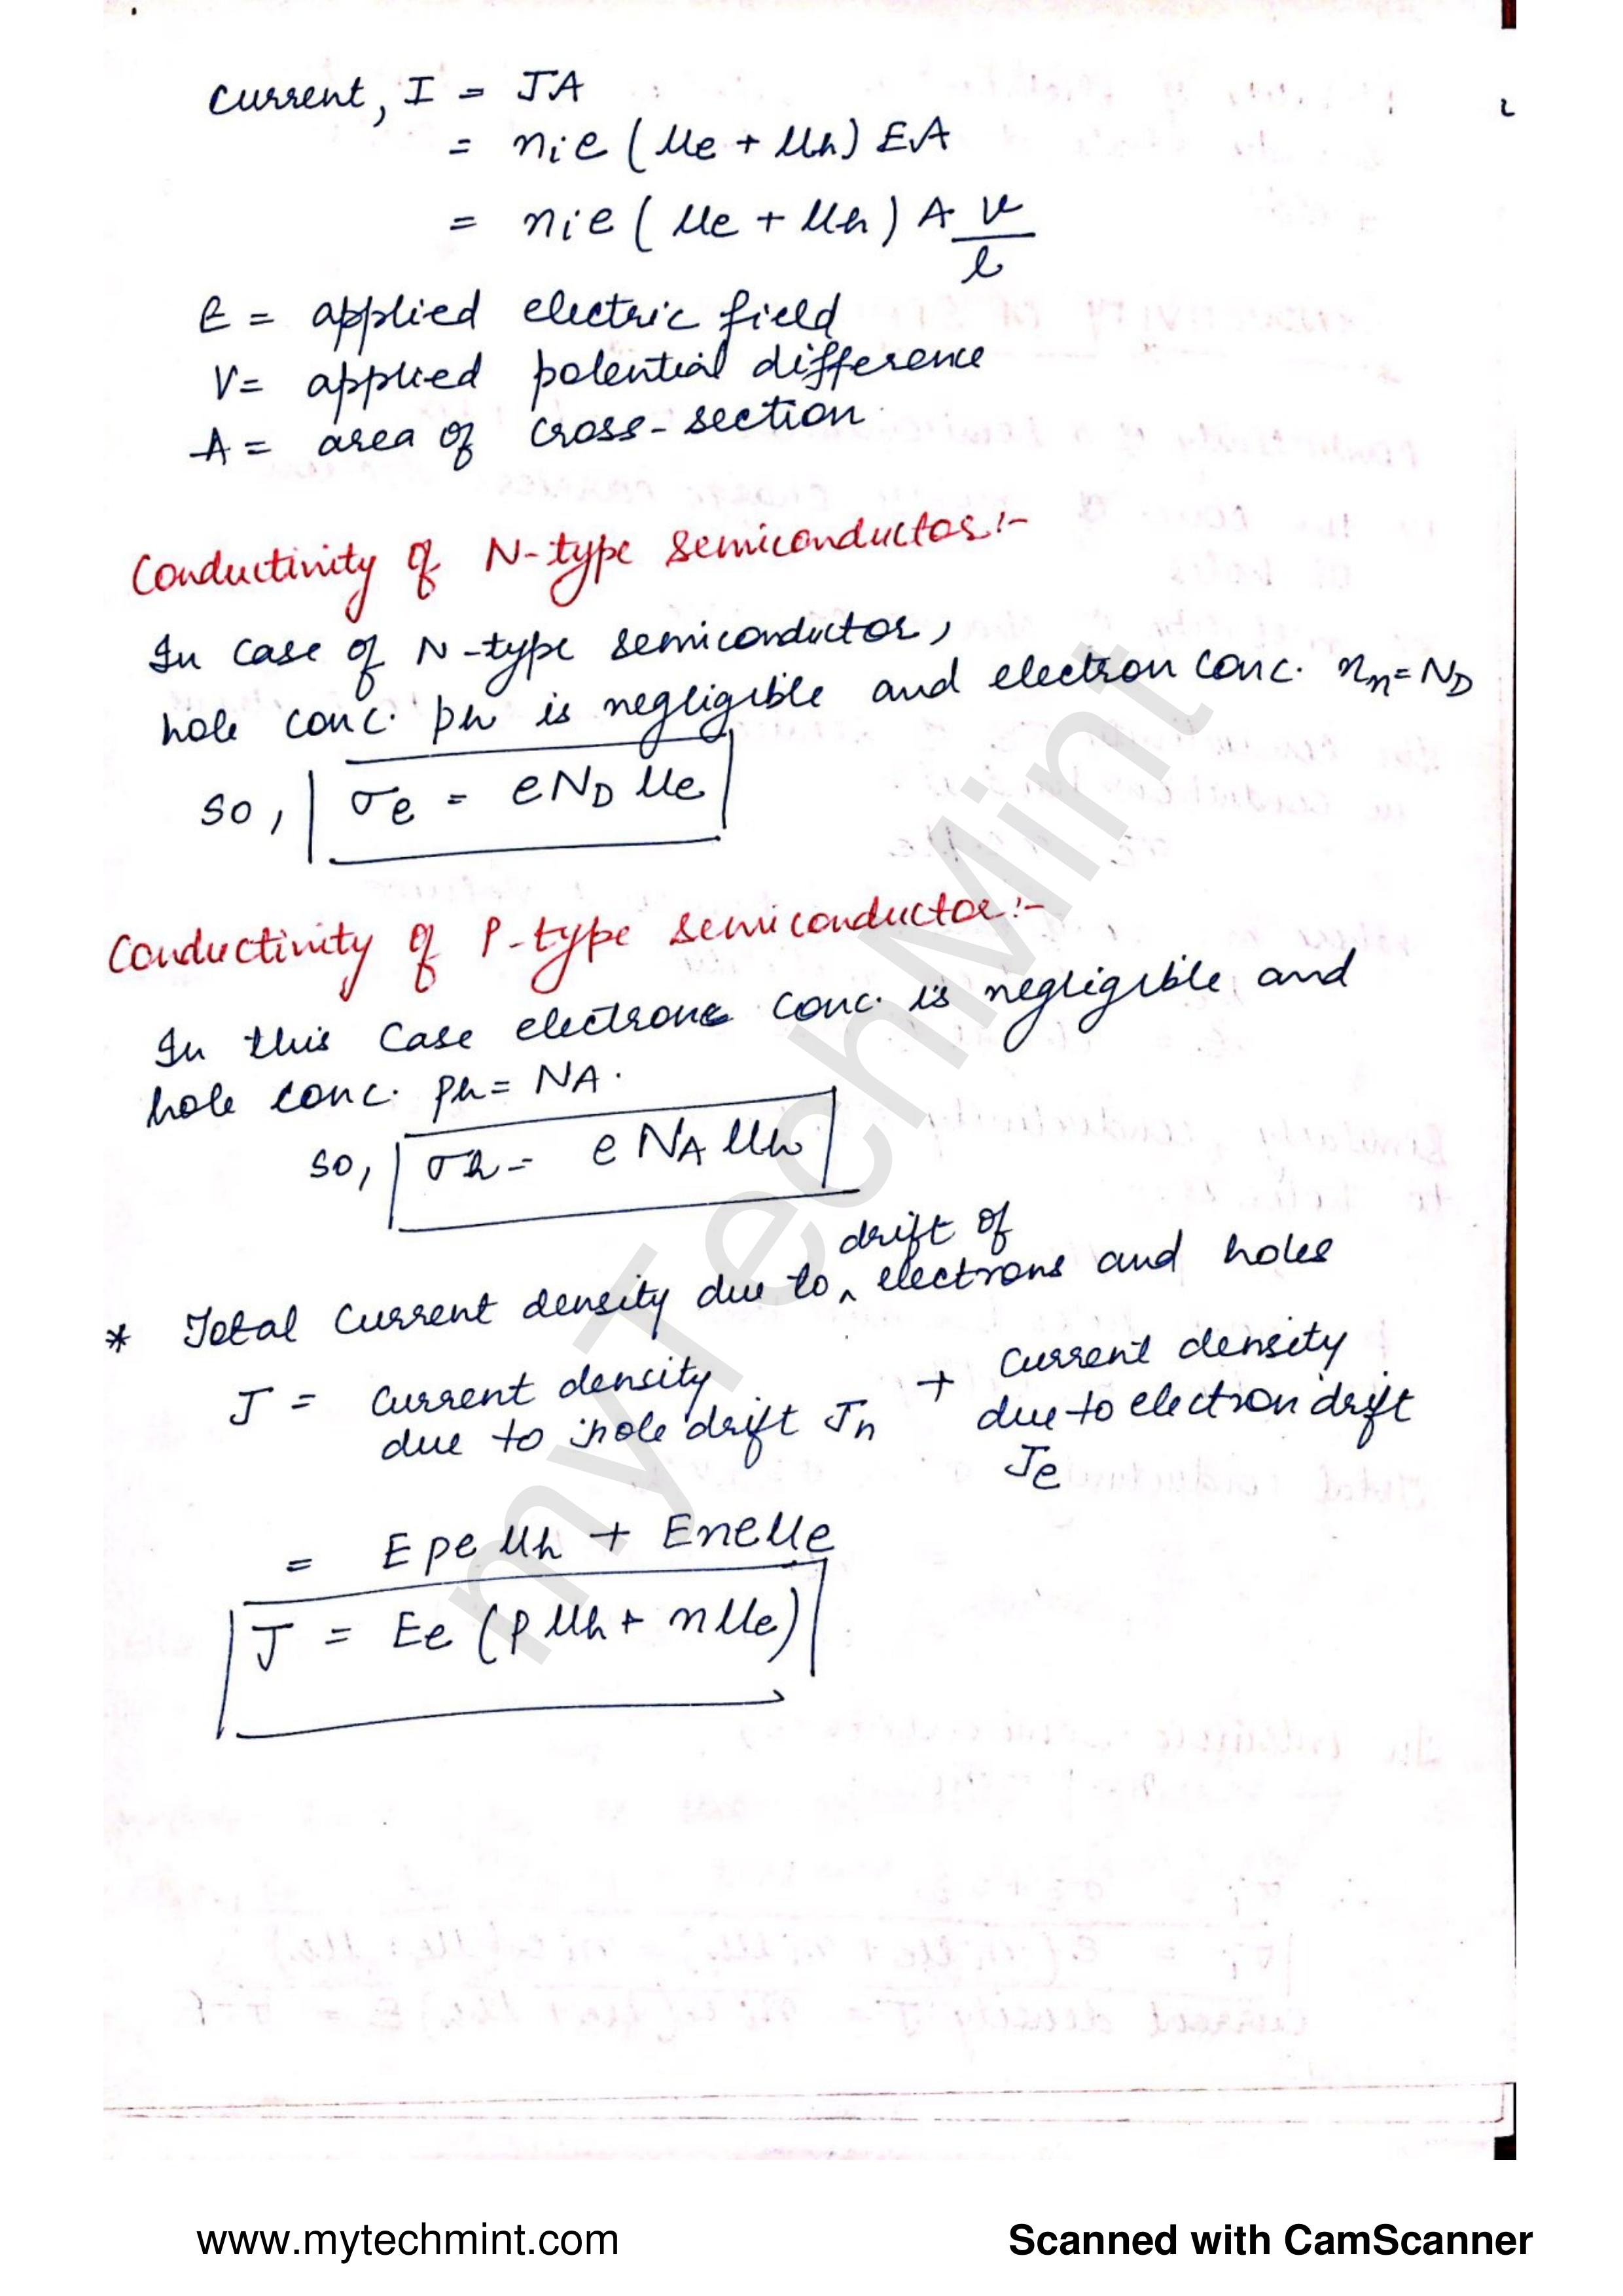 Current, I = JA
= nie (μe + μh) EA
= nie (μe + μh) A V/l
E = applied electric field
V = applied potential difference
A = area of cross-section
Conductivity of N-type semiconductor:-
In case of N-type semiconductor,
hole conc. ph is negligible and electron conc. nn = ND
so, σe = eND μe
Conductivity of P-type semiconductor:-
In this case electrone conc. is negligible and
hole conc. ph = NA.
so, σh = e NA μh
drift of
* Total current density due to ^ electrons and holes
J = Current density due to hole drift Jh + Current density due to electron drift Je
= Epe μh + Eneμe
J = Ee (pμh + nμe)
myTechMint
www.mytechmint.com
Scanned with CamScanner